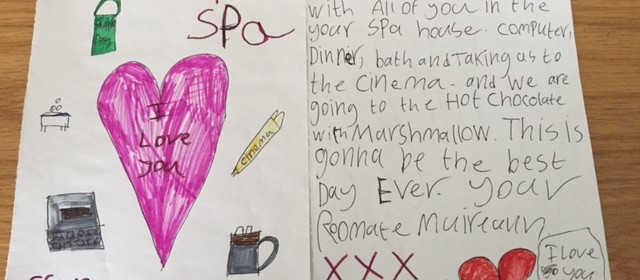 Spa
I
Love
you
cinema
with All of you in the
your spa house. computer,
Dinner, bath and Taking us to
the cinema. and we are
going to the Hot chocolate
with Marshmallow. This is
gonna be the best
Day Ever. your
Roomate Muireann
XXX
I Love
you